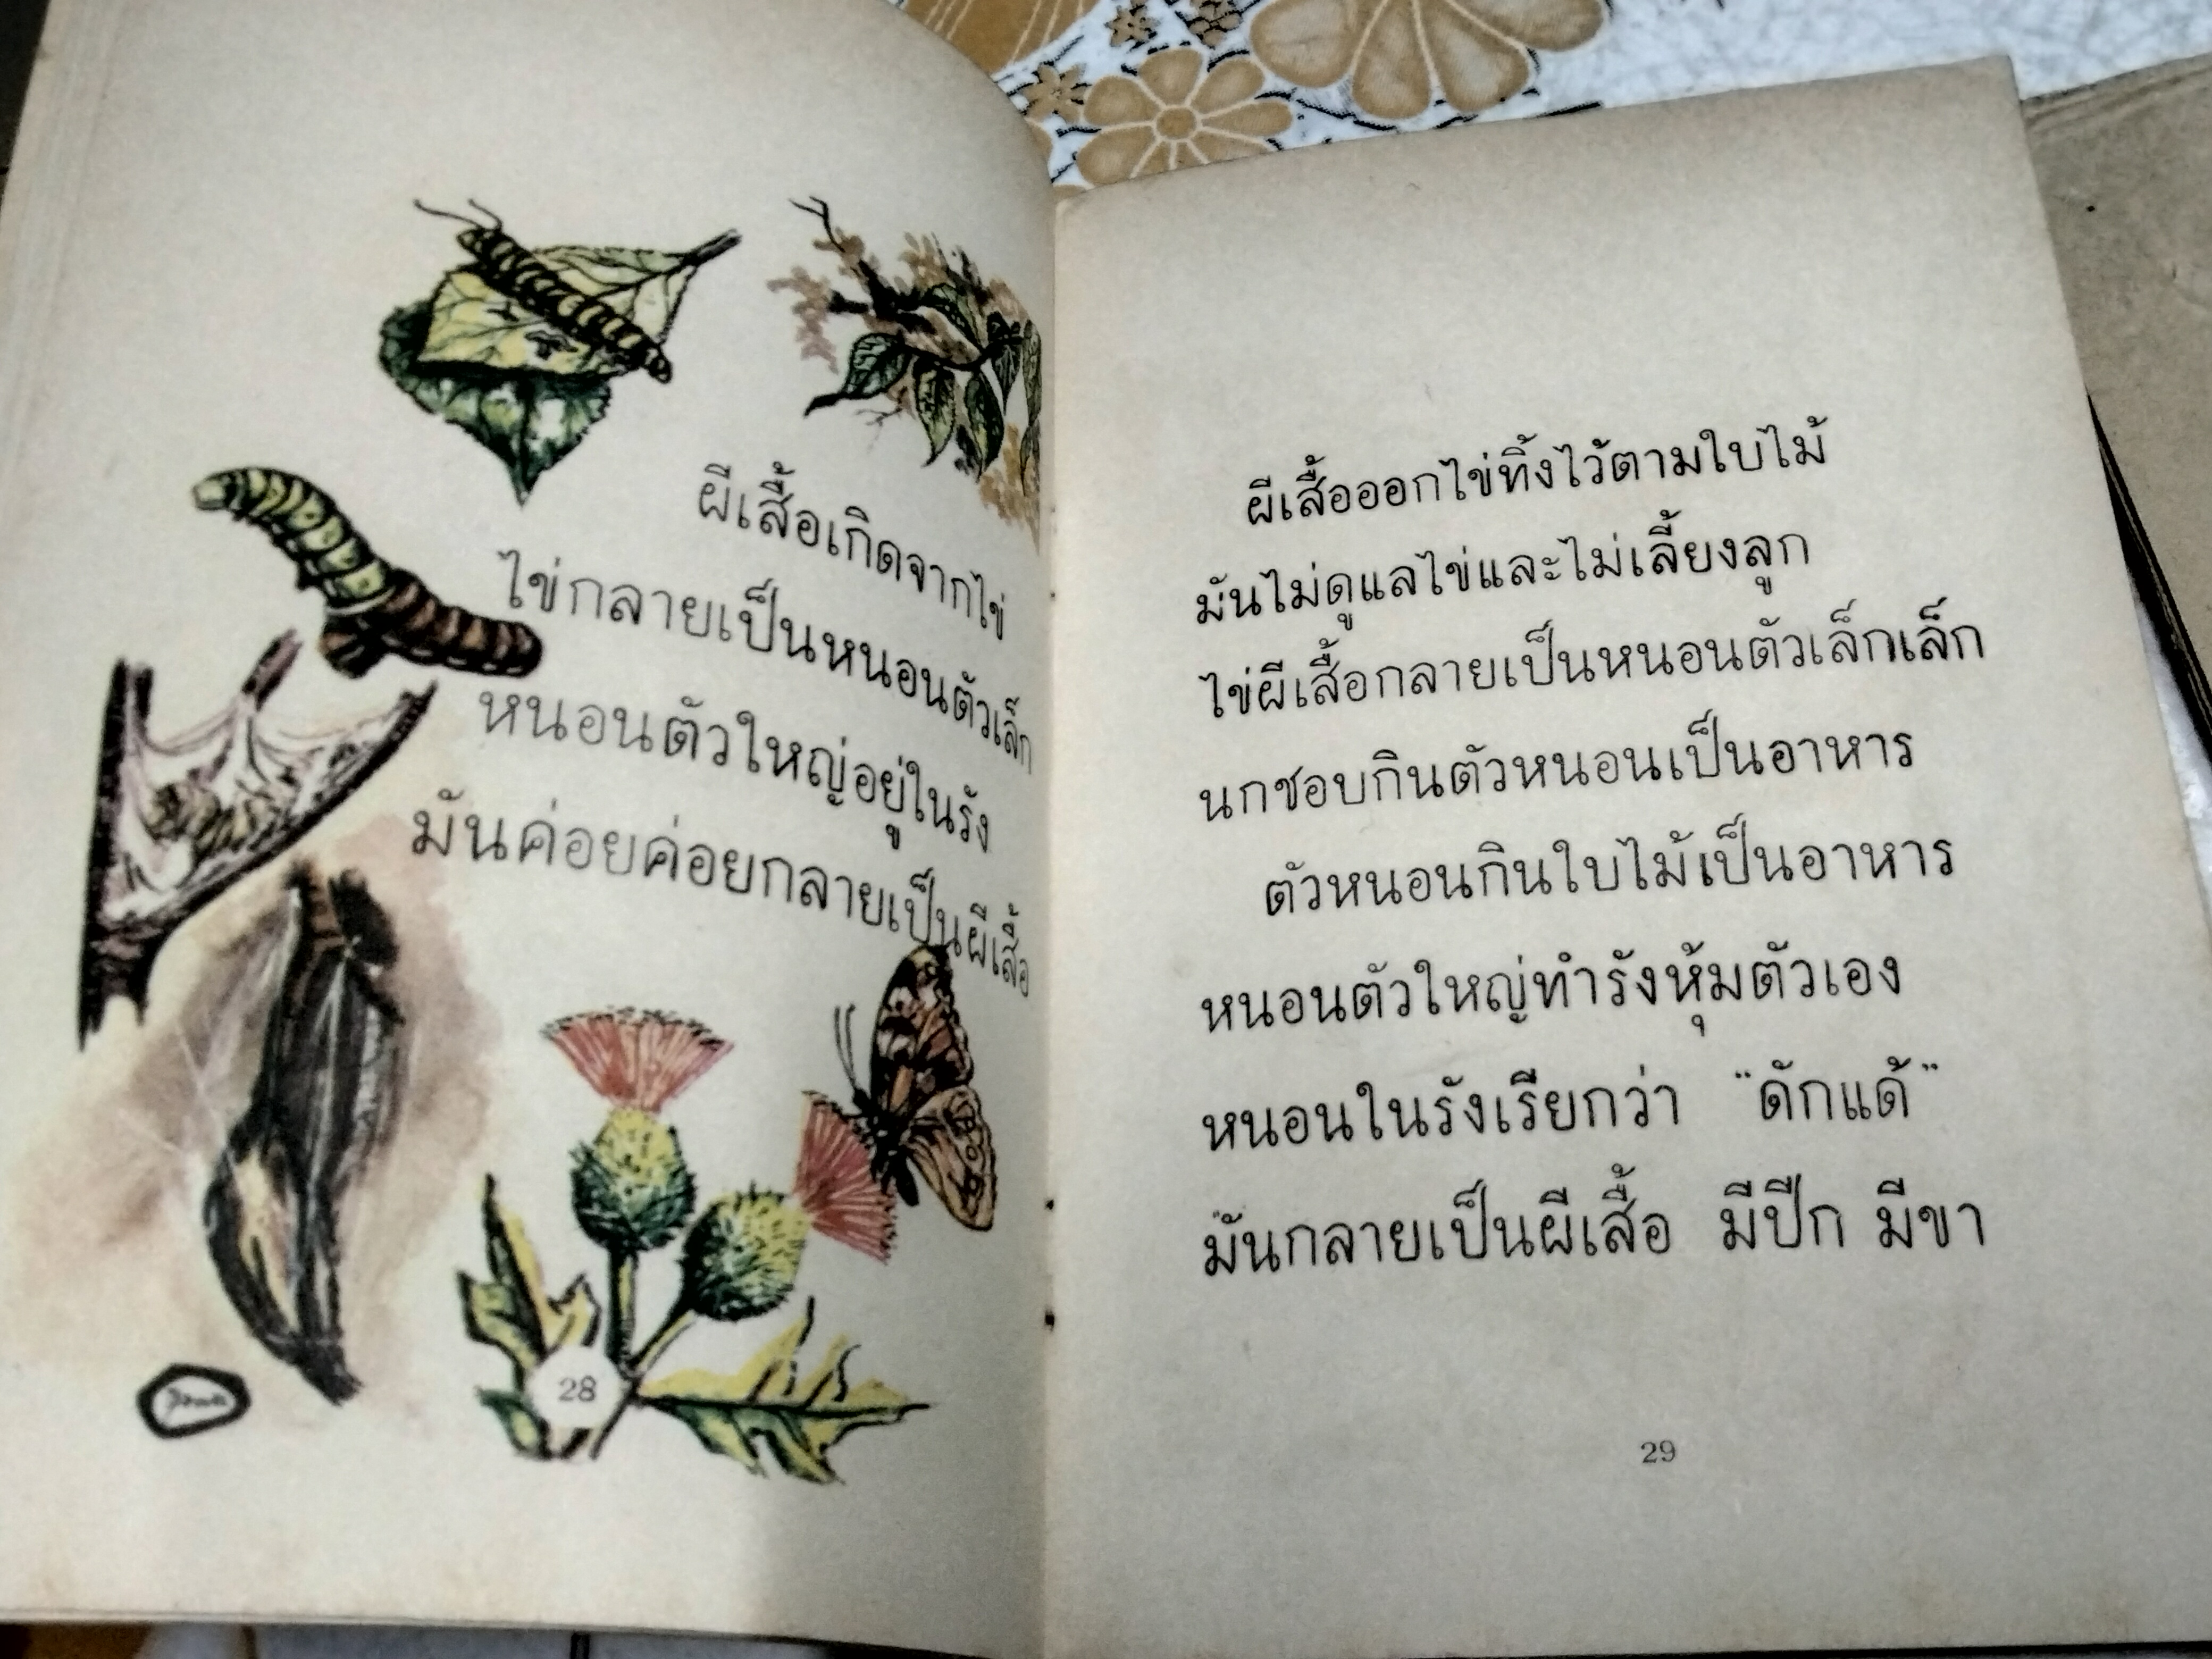 ผีเสื้อเกิดจากไข่
ไข่กลายเป็นหนอนตัวเล็ก
หนอนตัวใหญ่อยู่ในรัง
มันค่อยค่อยกลายเป็นผีเสื้อ
28
ผีเสื้อออกไข่ทิ้งไว้ตามใบไม้
มันไม่ดูแลไข่และไม่เลี้ยงลูก
ไข่ผีเสื้อกลายเป็นหนอนตัวเล็กเล็ก
นกชอบกินตัวหนอนเป็นอาหาร
ตัวหนอนกินใบไม้เป็นอาหาร
หนอนตัวใหญ่ทำรังหุ้มตัวเอง
หนอนในรังเรียกว่า "ดักแด้"
มันกลายเป็นผีเสื้อ มีปีก มีขา
29